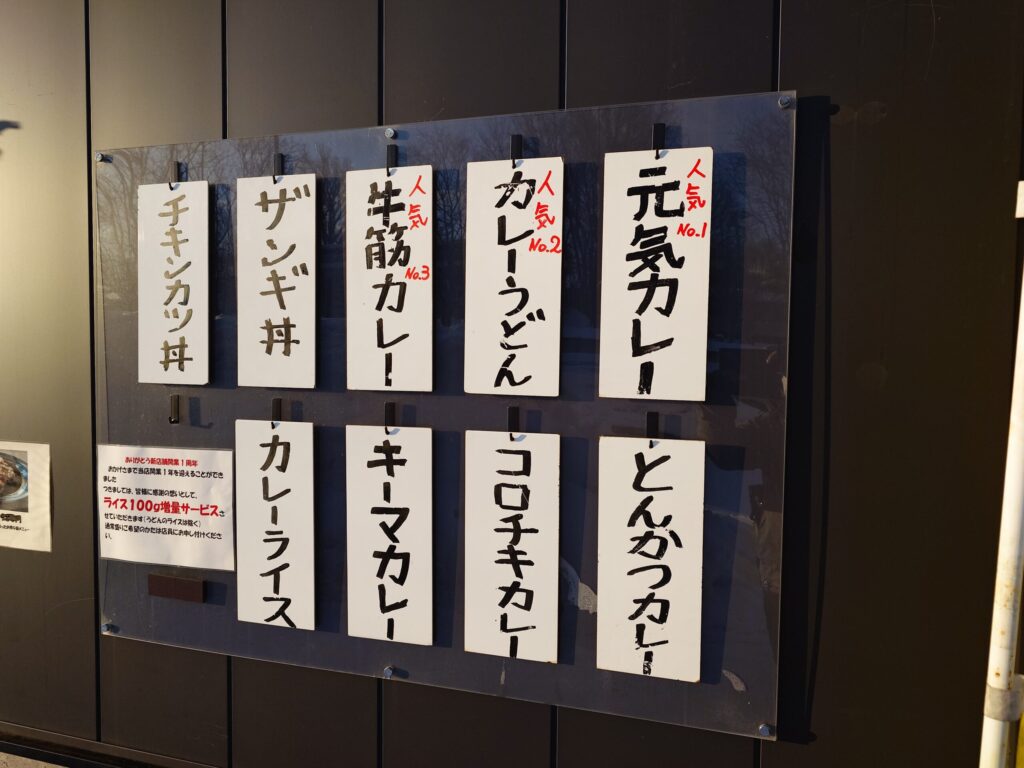 元気カレー
人気
No.1
カレーうどん
人気
No.2
牛筋カレー
人気
No.3
ザンギ丼
チキンカツ丼
とんかつカレー
コロチキカレー
キーマカレー
カレーライス
ありがとう新店舗開業1周年
おかげさまで当店開業1年を迎えることができ
ました
つきましては、皆様に感謝の想いとして、
ライス100g増量サービスさ
せていただきます(うどんのライスは除く)
通常盛りご希望のかたは店員にお申し付けくださ
い。